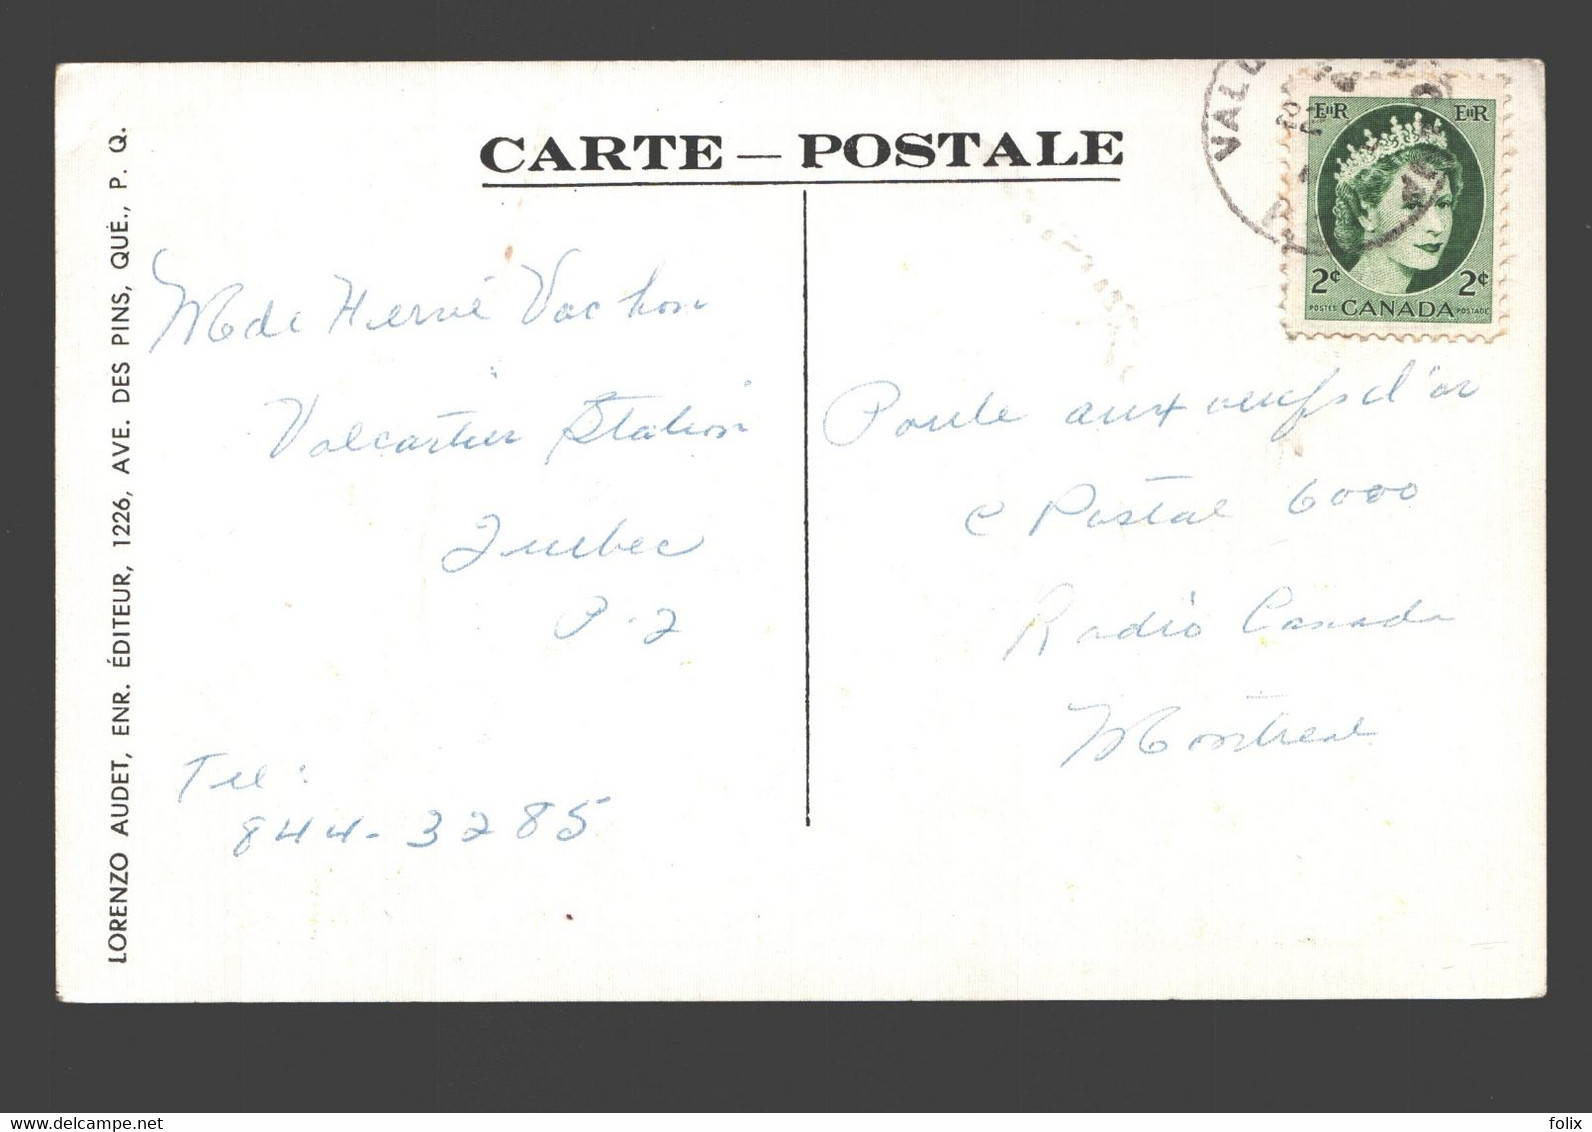 CARTE — POSTALE
LORENZO AUDET, ENR. ÉDITEUR, 1226, AVE. DES PINS, QUÉ., P. Q.
EIIR EIIR
2¢ 2¢
POSTES CANADA POSTAGE
VALC
Mde Hervé Vachon
Valcartier Station
Quebec
P-2
Tel:
844-3285
Poule aux oeufs d'or
C Postal 6000
Radio Canada
Montreal
delcampe.net
folix